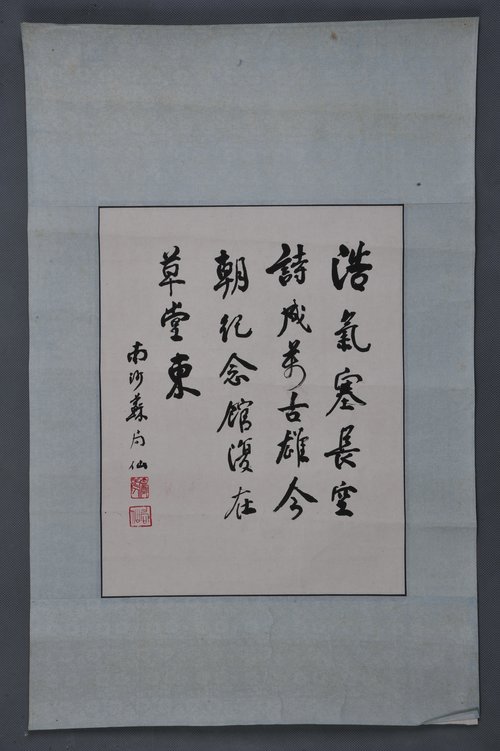 浩氣塞長空
詩成萬古雄今
朝紀念館復在
草堂東
南沙蘇局仙